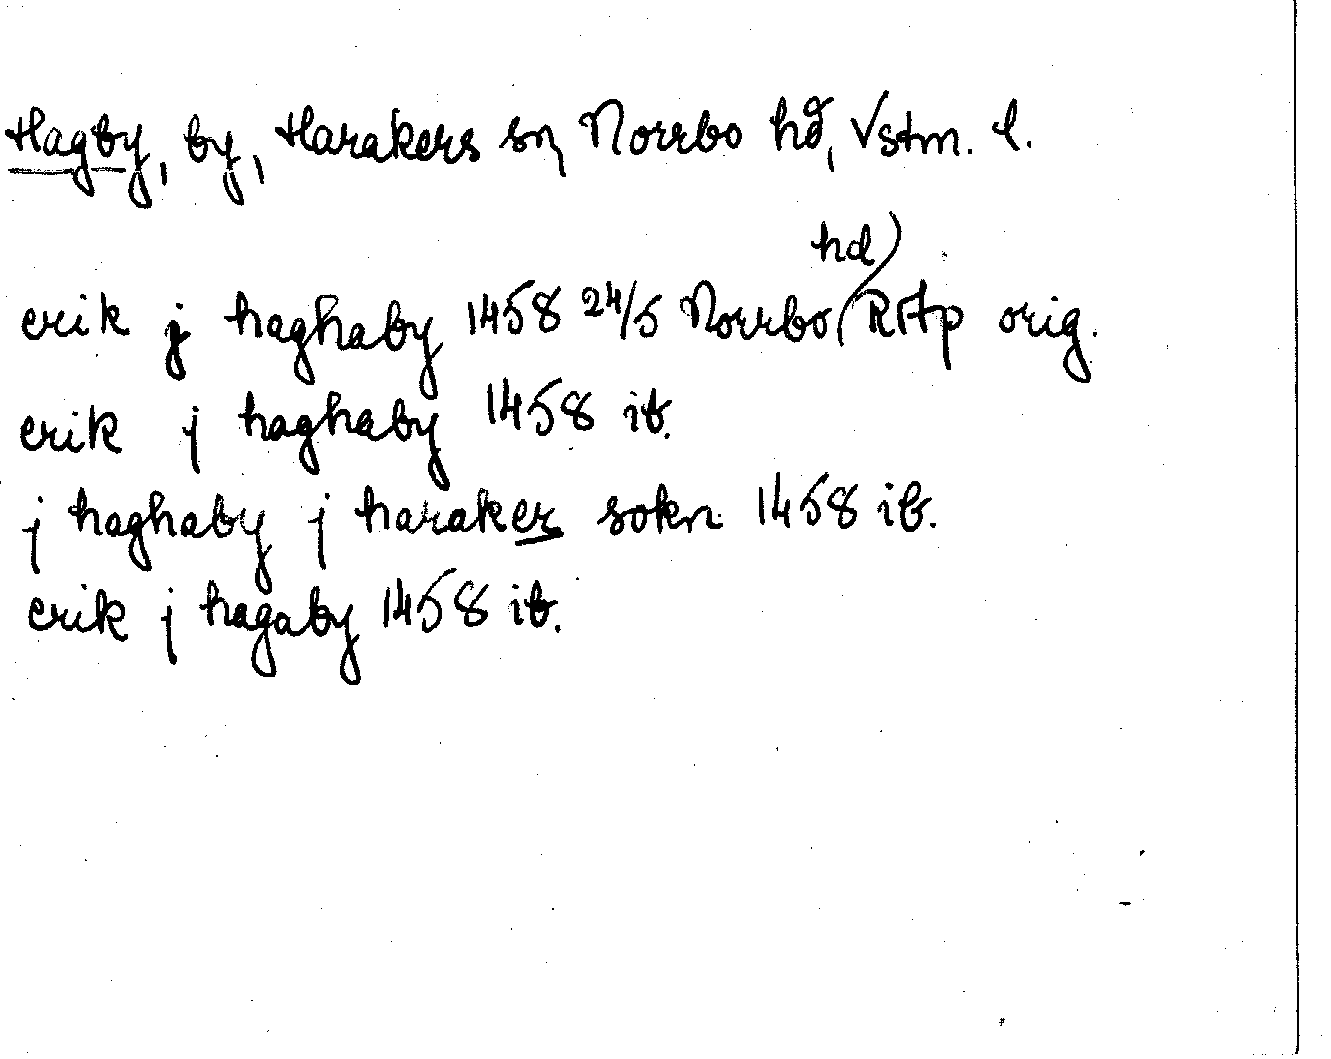 Hagby, by, Harakers sn, Norrbo hd, Vstm. l.
erik j haghaby 1458 24/5 Norrbo hd RAp orig.
erik j haghaby 1458 ib.
j haghaby j haraker sokn 1458 ib.
erik j hagaby 1458 ib.